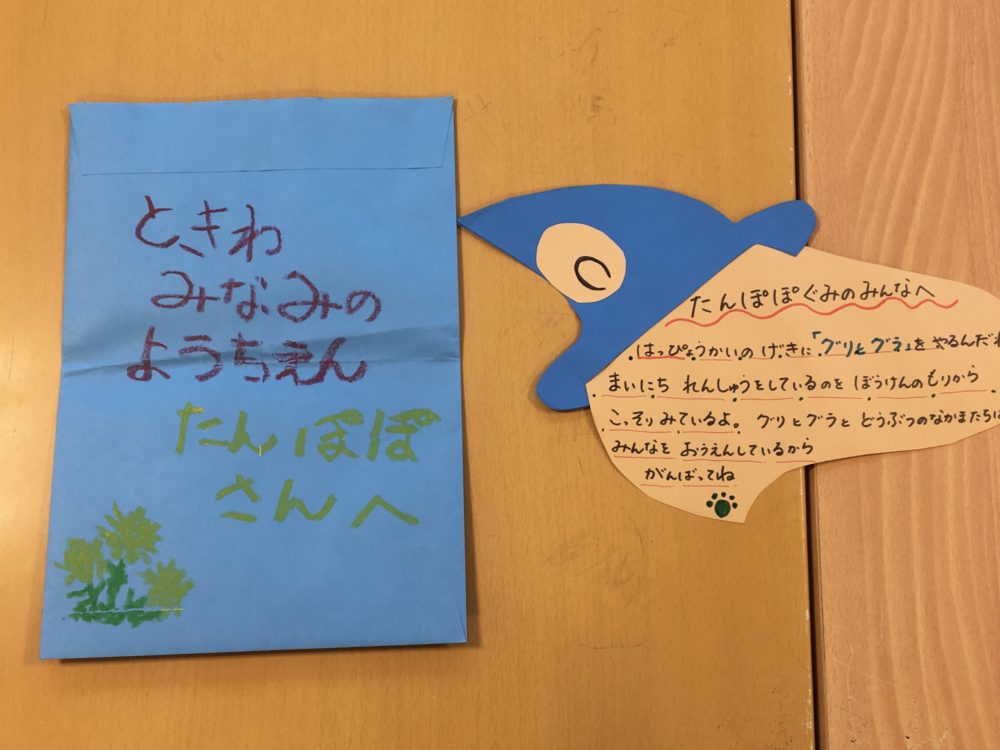 ときわ
みなみの
ようちえん
たんぽぽ
さんへ
たんぽぽぐみのみんなへ
はっぴょうかいの げきに「グリとグラ」を やるんだね
まいにち れんしゅうをしているのを ぼうけんのもりから
こっそりみているよ。 グリとグラと どうぶつのなかまたちは
みんなを おうえんしているから
がんばってね